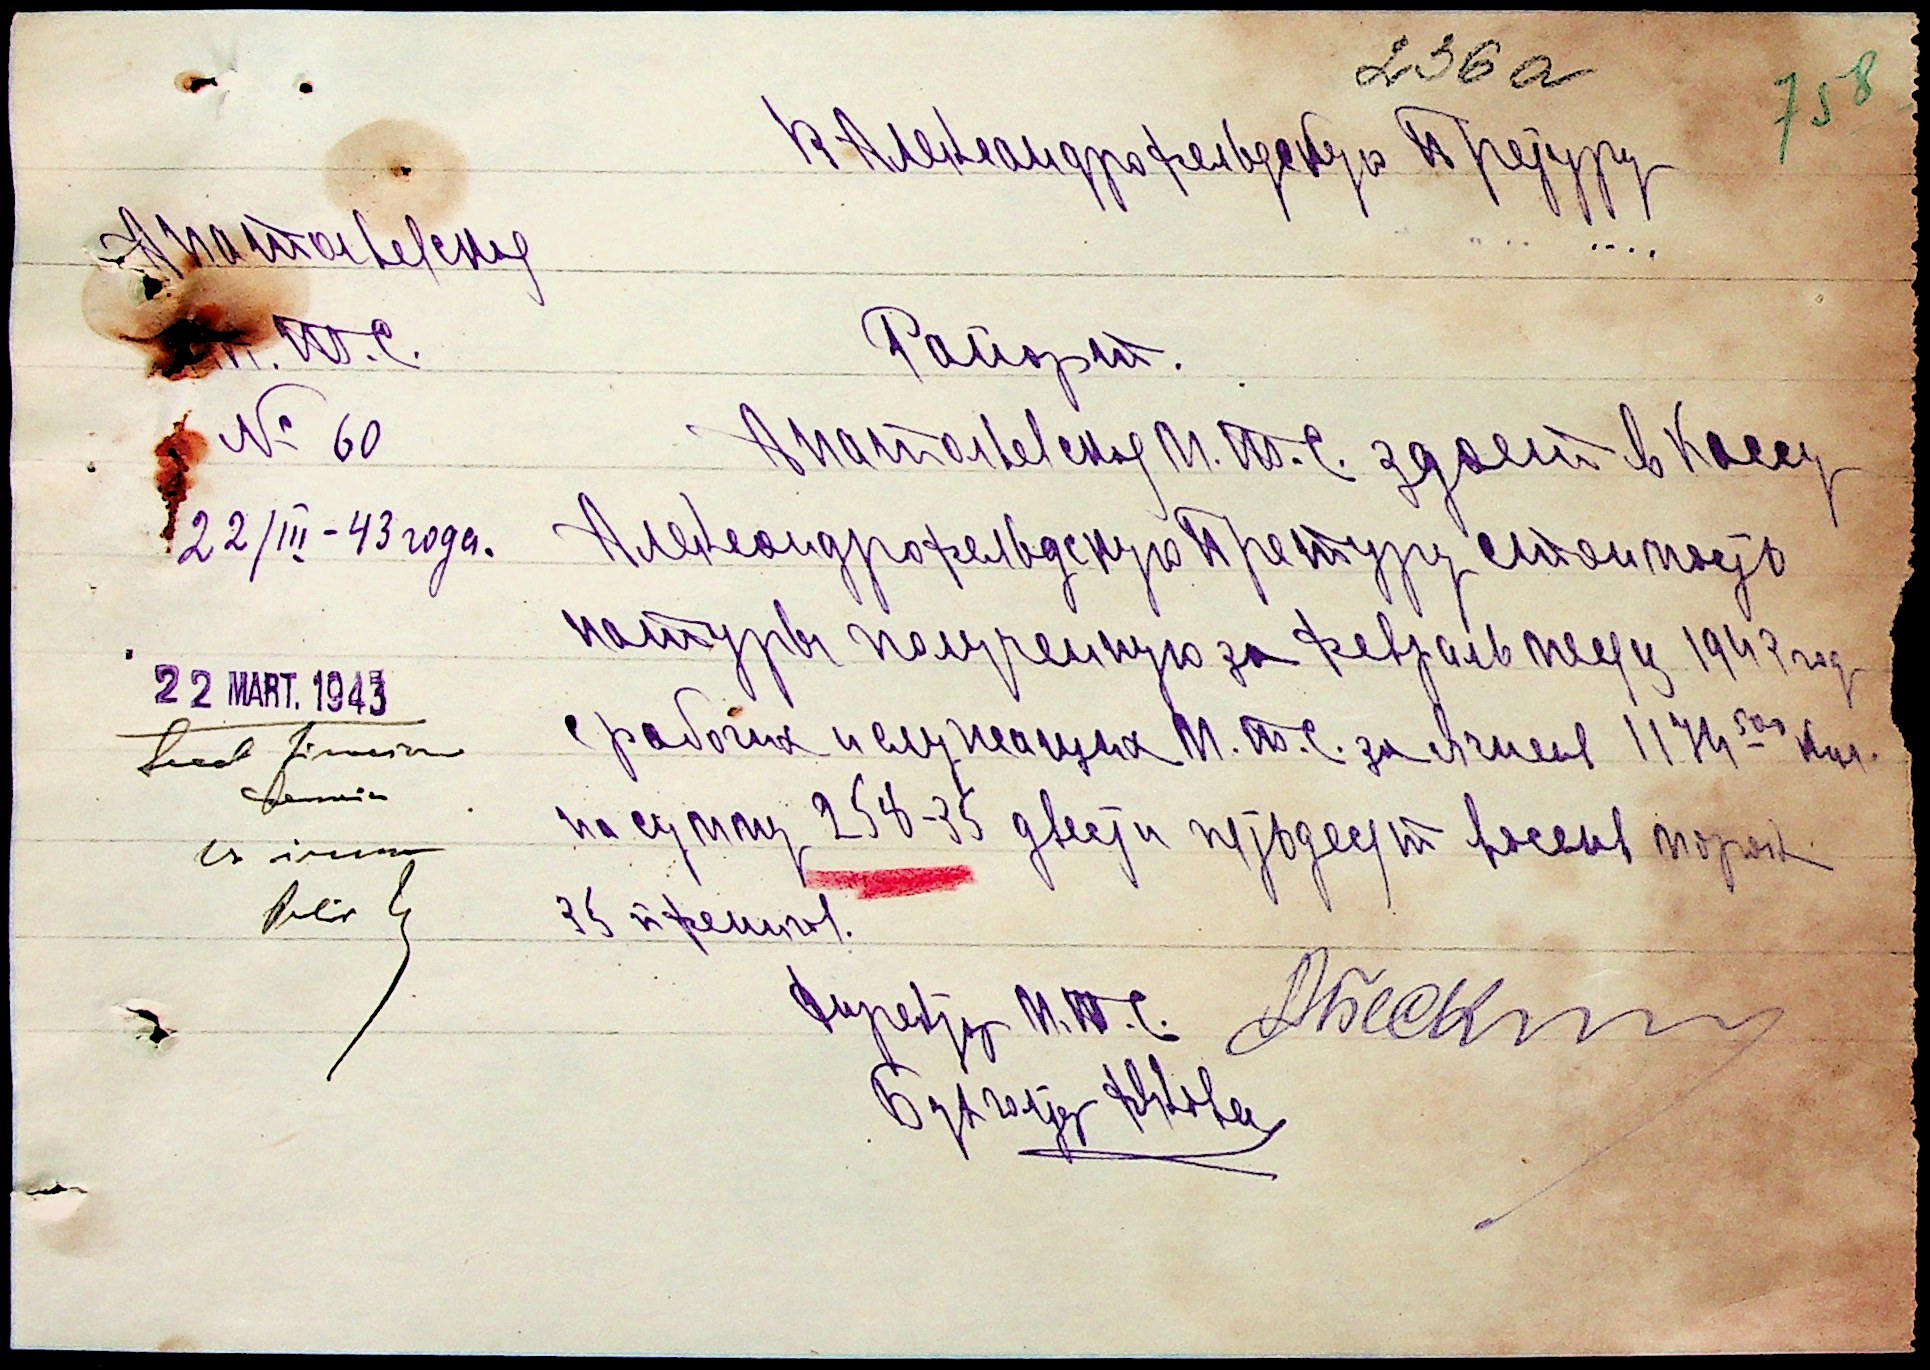 236а
758
К Александрофельдскую Претуру
Анатольевская
М.Т.С.
№ 60
22/III - 43 года.
Рапорт.
Анатольевская М.Т.С. здает в кассу
Александрофельдскую Претуру стоимость
натуры полученную за февраль месяц 1943 год
с рабочих и служащих М.Т.С. за ячмень 1174 500 кил.
на сумму 258-35 двести пятьдесят восемь марок
35 пфенигов.
22 MART. 1943
Директор М.Т.С.
Бухгалтер